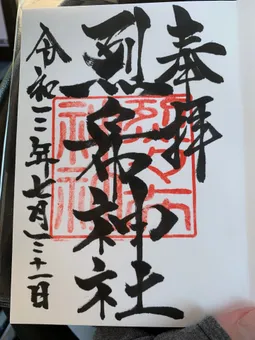 奉拝
烈々布神社
令和三年七月三十一日